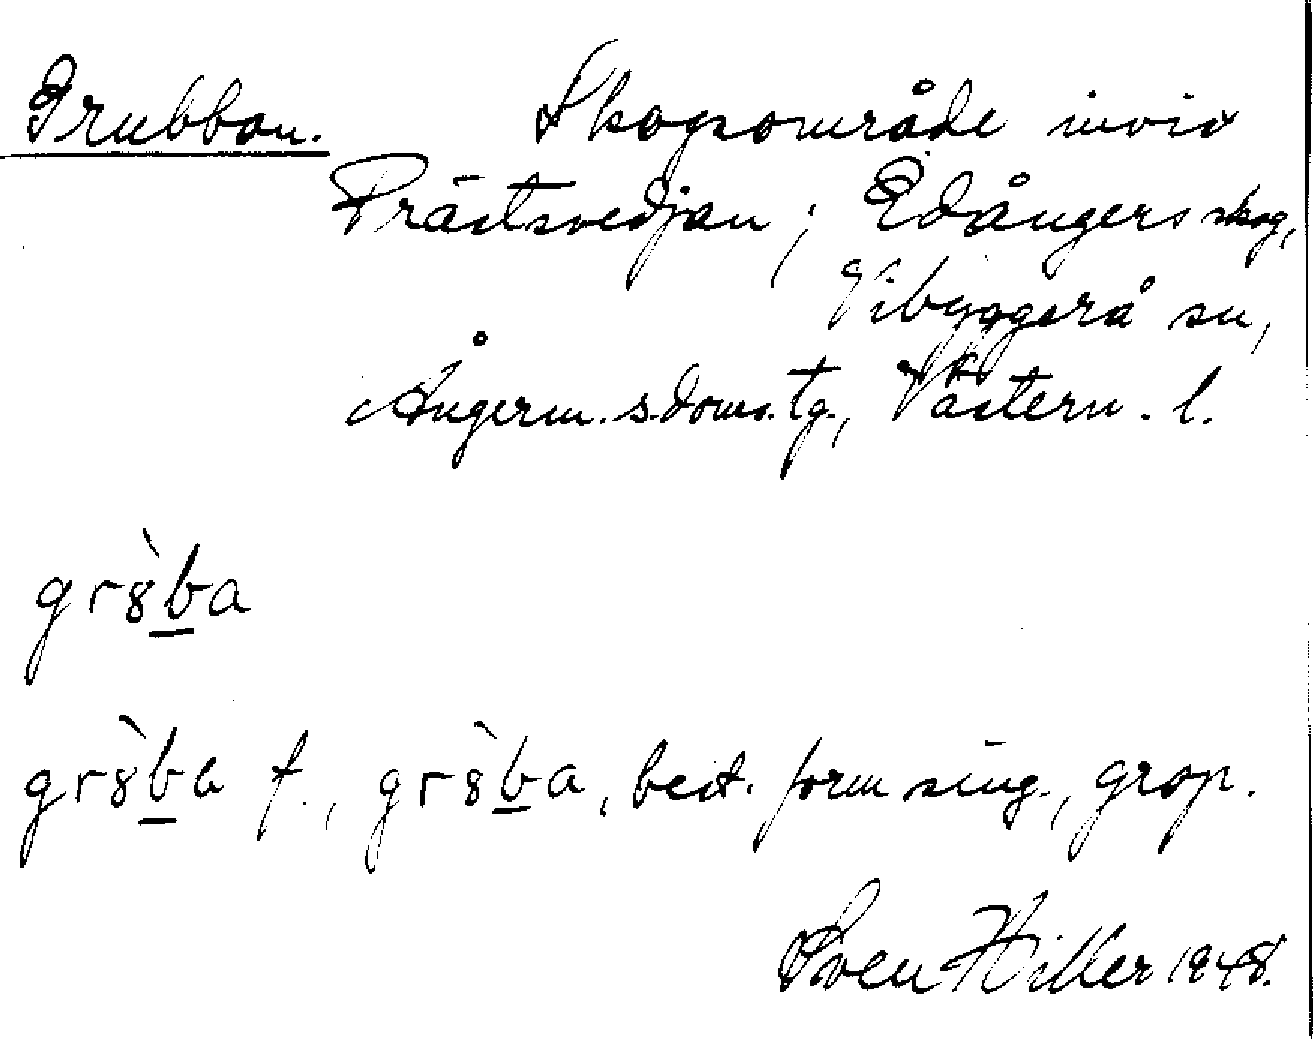 Grubban. Skogsområde invid
Prästsvedjan; Edångers skog,
Vibyggerå sn,
Ångerm. s. doms. tg., Västern. l.
gr8̀b̲a
gr8̀b̲a f., gr8̀b̲a, best. form sing., grop.
Sven Hiller 1948.